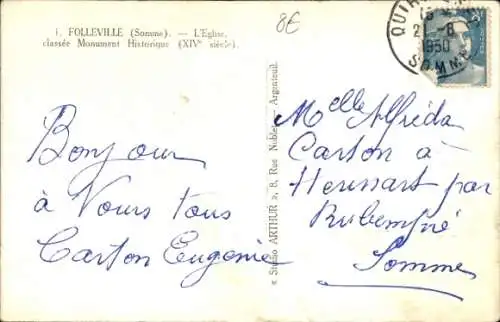 1. FOLLEVILLE (Somme). — L'Eglise,
classée Monument Historique (XIVe siècle).
8€
QUIR
2 -8
1950
SOMME
Bonjour
à Vous tous
Carton Eugénie
« Studio ARTHUR », 8, Rue Nobler — Argenteuil.
Melle Alfréda
Carton à
Herissart par
Rubempré
Somme